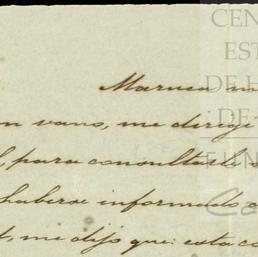 CEN
EST
DE H
DE
Maruca m
n vano, me dirigi
l, para consultarle
haberse informado
t, me dijo que: esta co